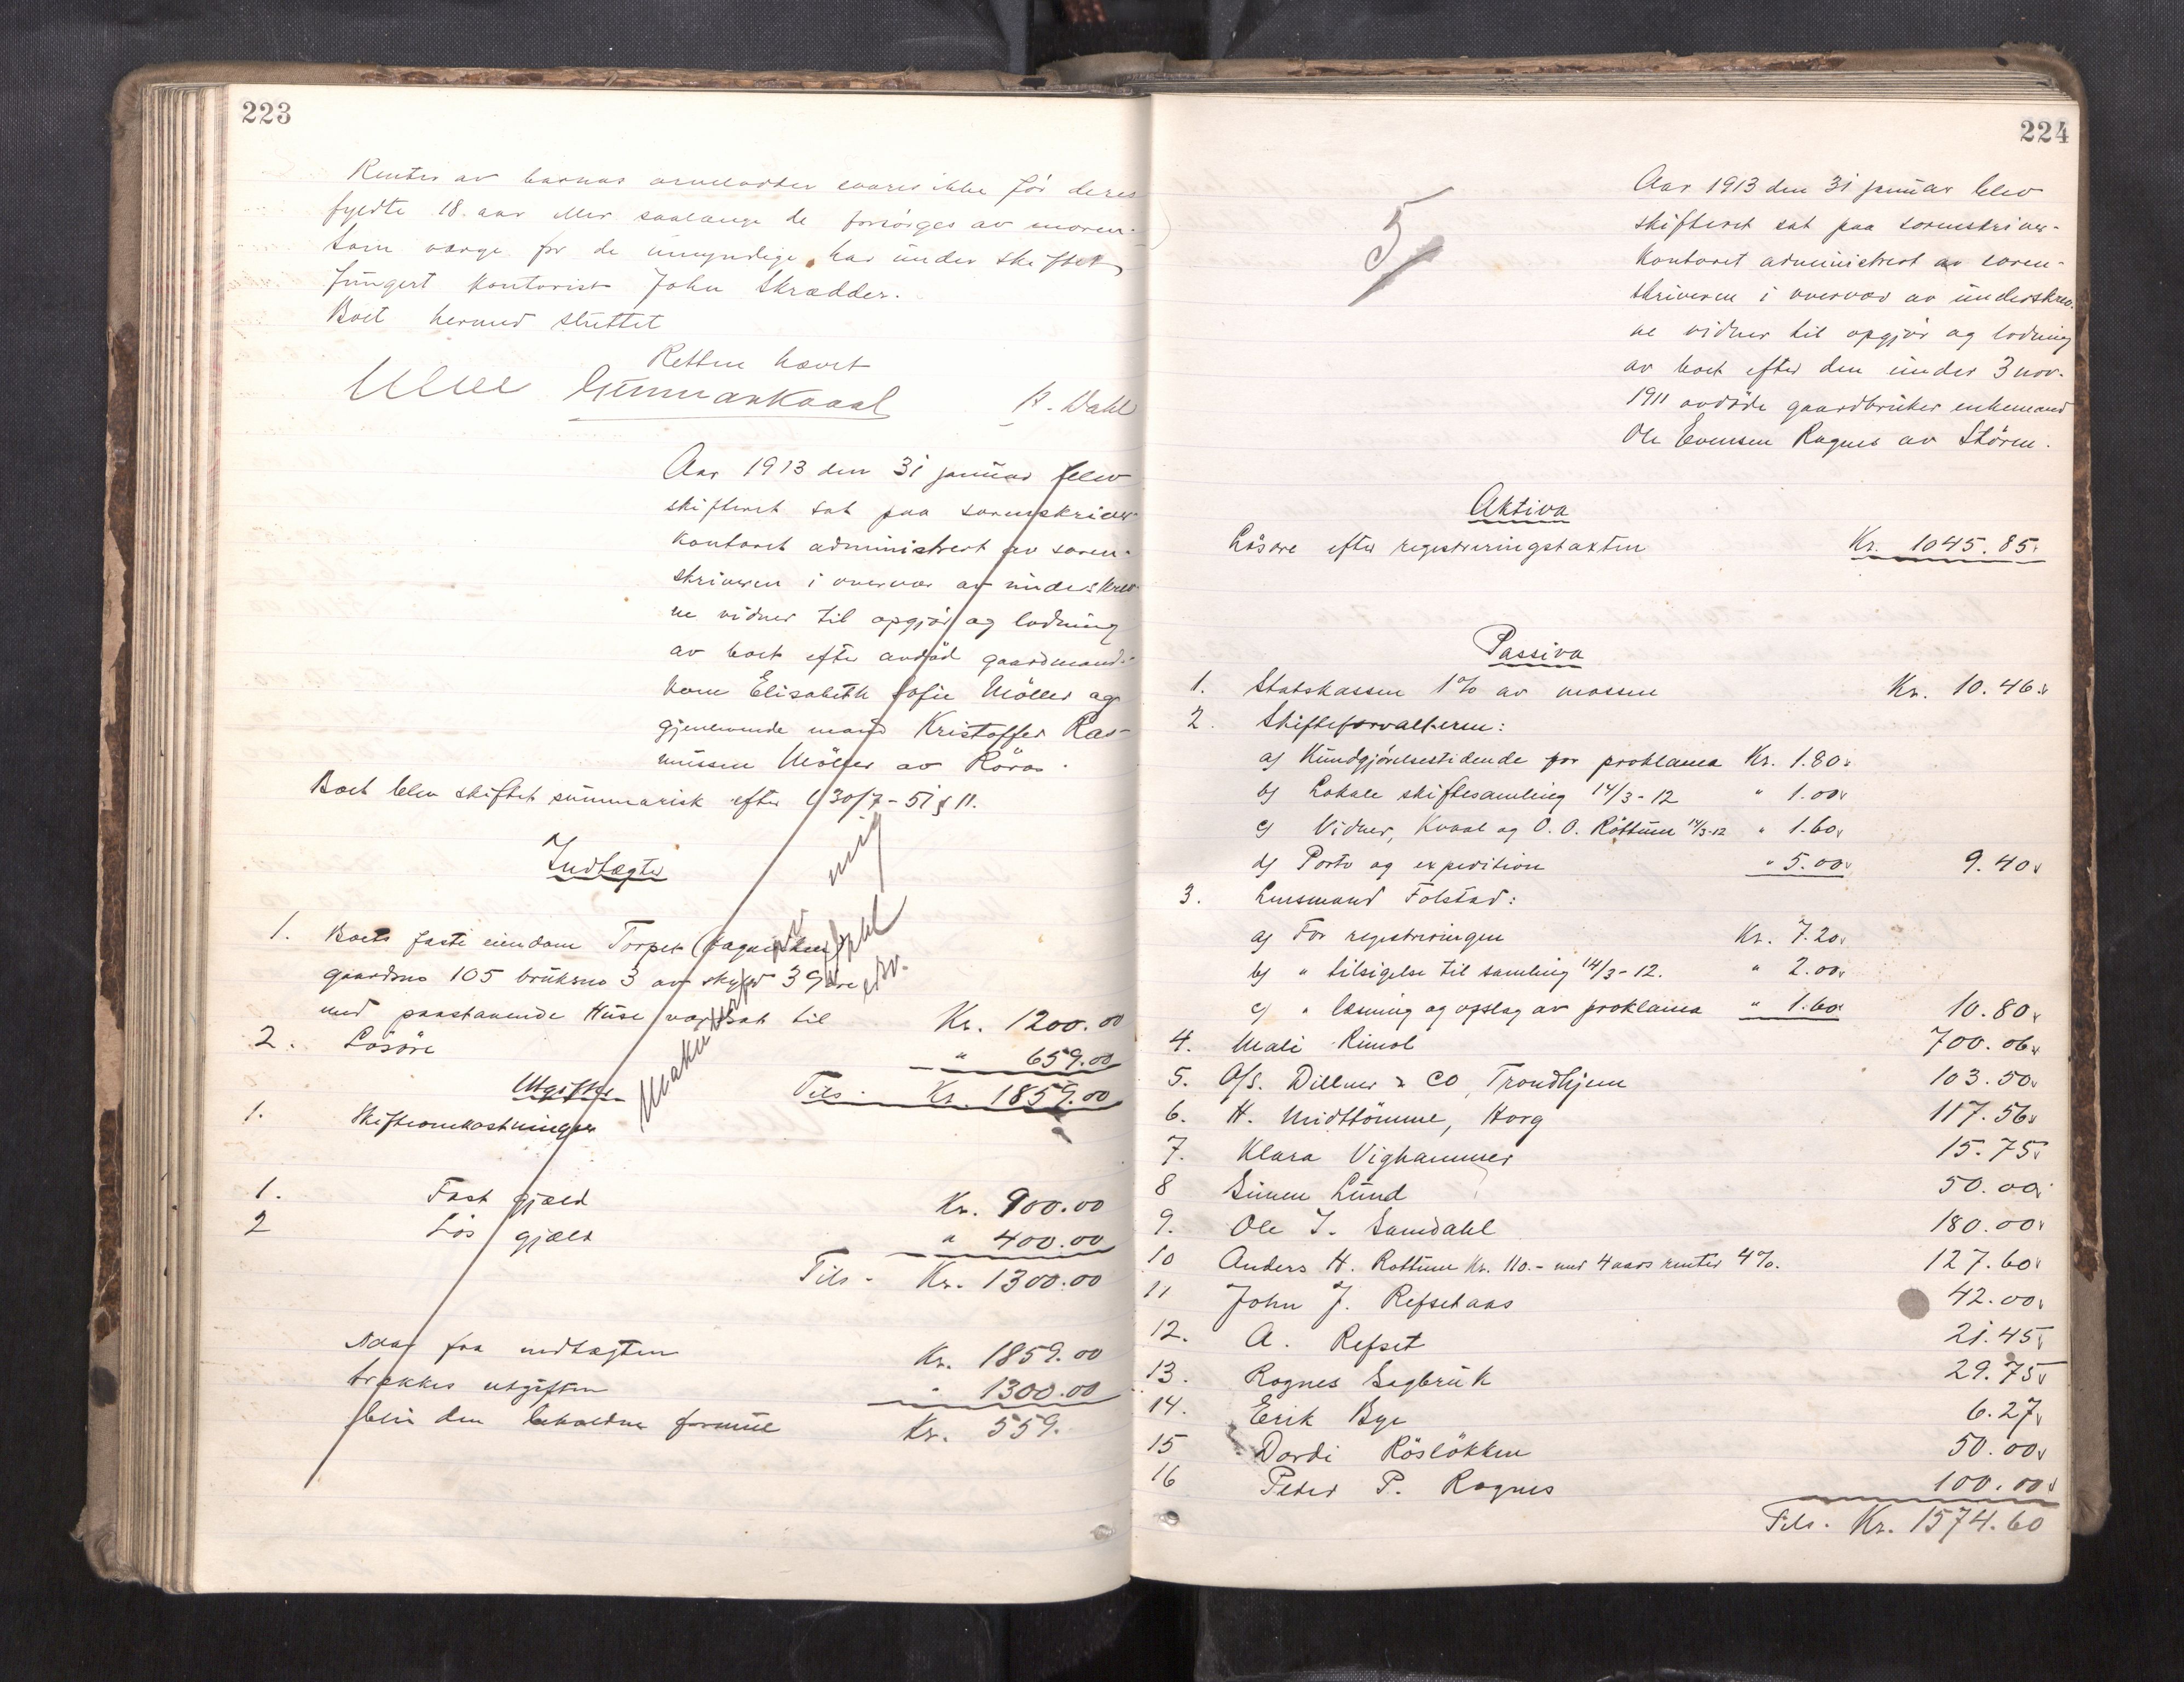 223
Renter av barnas arvelodder svares ikke för deres
fyldte 18. aar eller saalænge de forsörges av moren.
Som værge for de umyndige har under skiftet
fungert kontorist John Skrædder.
Boet hermed sluttet
Retten hævet
Gunnar Kvaal
A. Dahl
Aar 1913 den 31 januar blev
skifteret sat paa sorenskriver-
kontoret administrert av soren-
skriveren i overvær av underskrev-
ne vidner til opgjör og lodning
av boet efter avdöd gaardmands-
kone Elisabeth Sofie Möller og
gjenlevende mand Kristoffer Ras-
mussen Möller av Röros.
Boet blev skiftet summarisk efter l 30/7-51 § 11.
Indtægter
1. Boets faste eiendom Torpet
gaardsno 105 bruksno 3 av skyld 39 öre
med paastaaende Huse værdsat til Kr. 1200.00
2. Lösöre " 659.00
Utgifter Tils. Kr. 1859.00
1. Skifteomkostninger
Makulert av mig
A. Dahl
edsv.
1. Fast gjæld Kr. 900.00
2 Lös gjæld " 400.00
Tils. Kr. 1300.00
Naar fra indtægten Kr. 1859.00
trækkes utgiften " 1300.00
blir den beholdne formue Kr. 559.
224
5
Aar 1913 den 31 januar blev
skifteret sat paa sorenskriver-
kontoret administrert av soren-
skriveren i overvær av underskrev-
ne vidner til opgjör og lodning
av boet efter den under 3 nov.
1911 avdöde gaardbruker enkemand
Ole Evensen Rognes av Stören.
Aktiva
Lösöre efter registreringstaxten Kr. 1045.85
Passiva
1. Statskassen 1% av massen Kr. 10.46
2. Skifteforvalteren:
a) Kundgjörelsestidende for proklama Kr. 1.80
b) Lokale skiftesamling 14/3-12 " 1.00
c) Vidner, Kvaal og O. O. Rottum 14/3-12 " 1.60
d) Porto og expedition " 5.00 9.40
3. Lensmand Folstad:
a) For registreringen Kr. 7.20
b) " tilsigelse til samling 14/3-12. " 2.00
c) " læsning og opslag av proklama " 1.60 10.80
4. Mali Rimol 700.06
5. A/S. Dillner & Co, Trondhjem 103.50
6. H. Midttömme, Horg 117.56
7. Klara Vighammer 15.75
8 Simen Lund 50.00
9. Ole J. Samdahl 180.00
10 Anders H. Rottum Kr. 110.- med 4 aars renter 4%. 127.60
11 John J. Refsetaas 42.00
12. A. Refset 21.45
13. Rognes Sagbruk 29.75
14. Erik Bye 6.27
15 Dordi Röslökken 50.00
16 Peder P. Rognes 100.00
Tils. Kr. 1574.60